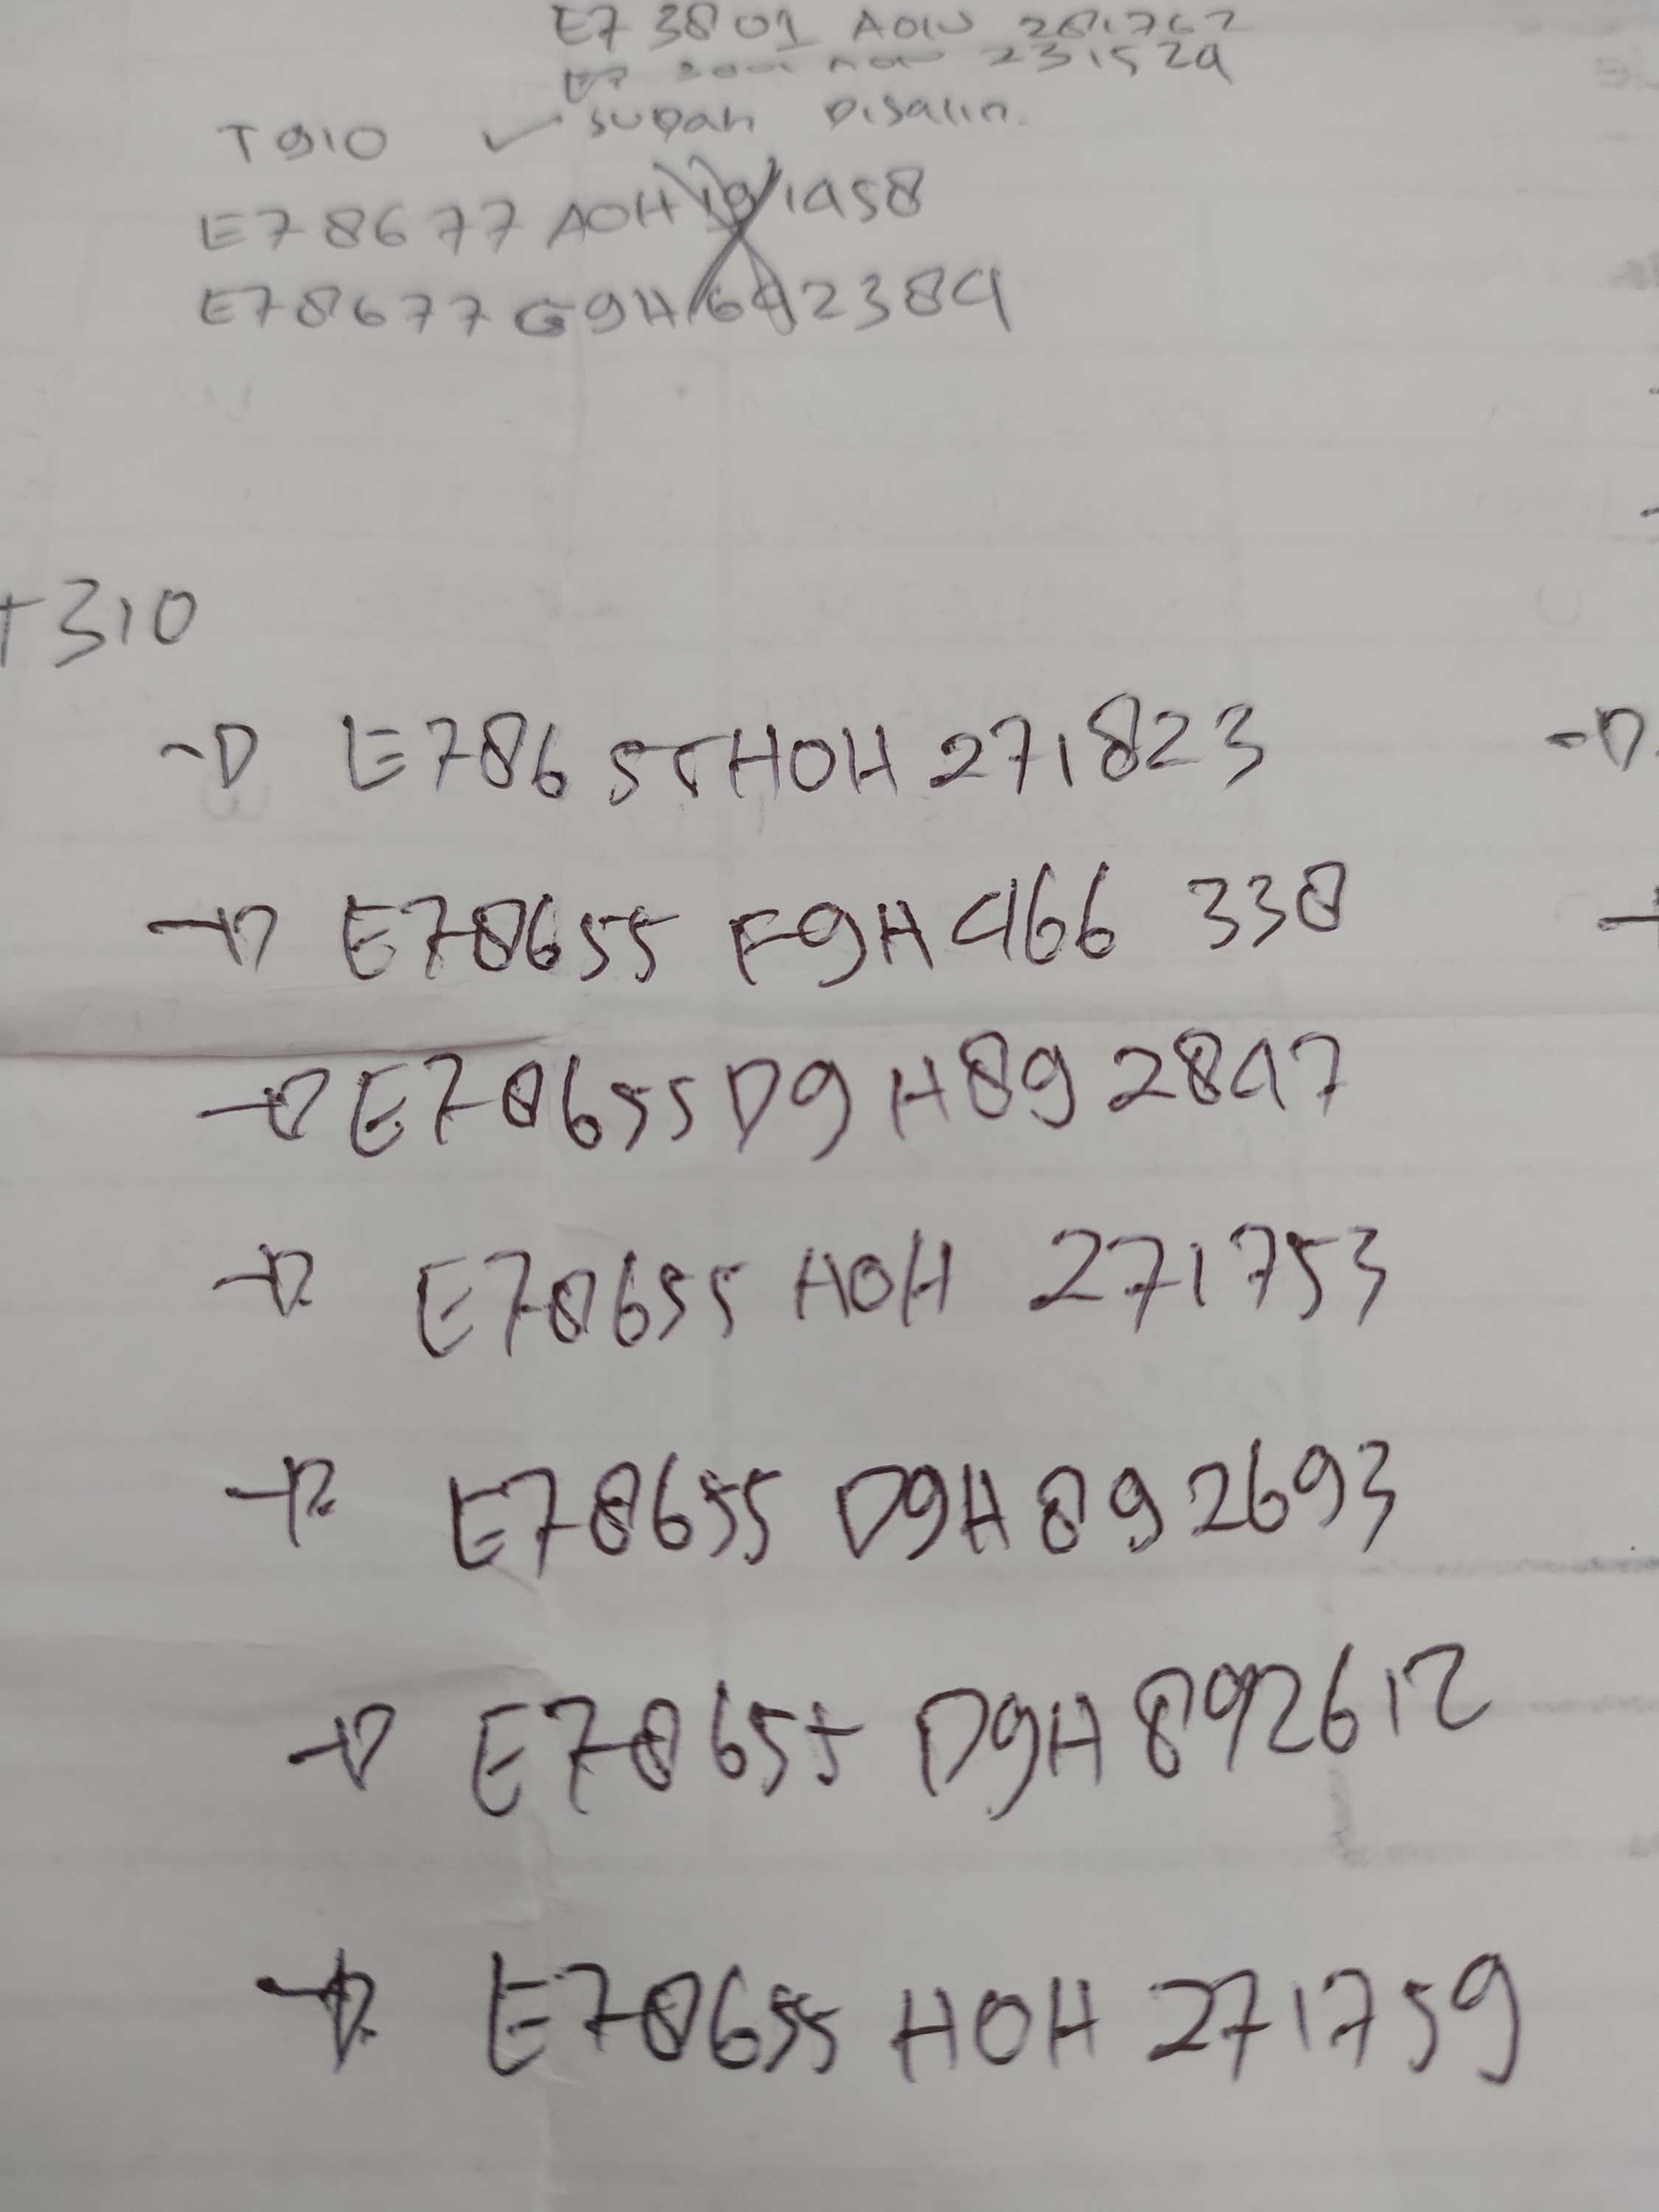 E73801 A01U 281762
231529
T910 ✓ SUDAH DISALIN.
E78677 A0H191458
E78677G9H642384
T310
→ E78655H0H271823
→ E78655 F9H466 338
→ E78655D9H892847
→ E78655 H0H 271753
→ E78655 D9H892693
→ E78655 D9H892612
→ E78655 H0H 271759